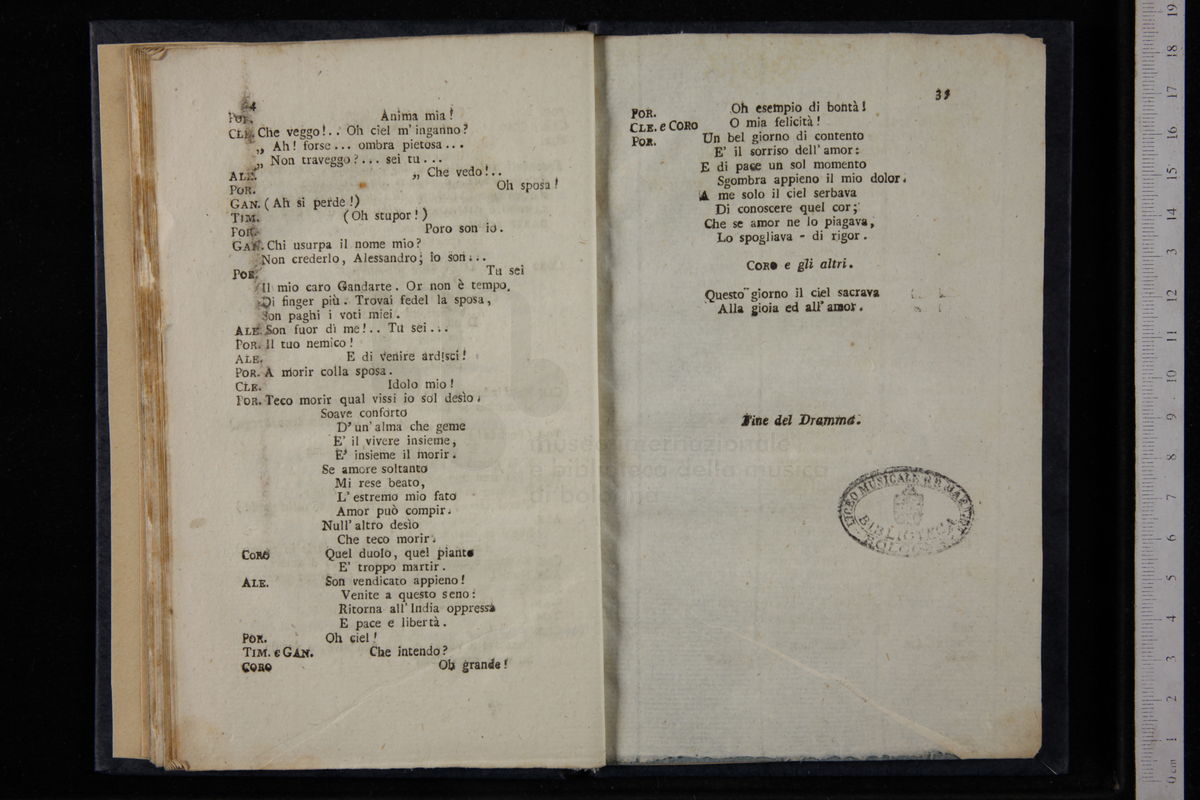 POR. Anima mia!
CLE. Che veggo!.. Oh ciel m' inganno?
„ Ah! forse... ombra pietosa...
„ Non traveggo?... sei tu...
ALE. „ Che vedo!..
POR. Oh sposa!
GAN. (Ah si perde!)
TIM. (Oh stupor!)
POR. Poro son io.
GAN. Chi usurpa il nome mio?
Non crederlo, Alessandro; io son...
POR. Tu sei
Il mio caro Gandarte. Or non è tempo,
Di finger più. Trovai fedel la sposa,
Son paghi i voti miei.
ALE. Son fuor di me!.. Tu sei...
POR. Il tuo nemico!
ALE. E di venire ardisci!
POR. A morir colla sposa.
CLE. Idolo mio!
POR. Teco morir qual vissi io sol desìo.
Soave conforto
D' un' alma che geme
E' il vivere insieme,
E' insieme il morir.
Se amore soltanto
Mi rese beato,
L' estremo mio fato
Amor può compir.
Null' altro desìo
Che teco morir.
CORO Quel duolo, quel pianto
E' troppo martir.
ALE. Son vendicato appieno!
Venite a questo seno:
Ritorna all' India oppressa
E pace e libertà.
POR. Oh ciel!
TIM. e GAN. Che intendo?
CORO Oh grande!
35
POR. Oh esempio di bontà!
CLE. e CORO O mia felicità!
POR. Un bel giorno di contento
E' il sorriso dell' amor:
E di pace un sol momento
Sgombra appieno il mio dolor.
A me solo il ciel serbava
Di conoscere quel cor;
Che se amor ne lo piagava,
Lo spogliava - di rigor.
CORO e gli altri.
Questo giorno il ciel sacrava
Alla gioia ed all' amor.
Fine del Dramma.
museo internazionale
e biblioteca della musica
di bologna
LICEO MUSICALE
BIBLIOTECA
BOLOGNA
0 cm 1 2 3 4 5 6 7 8 9 10 11 12 13 14 15 16 17 18 19